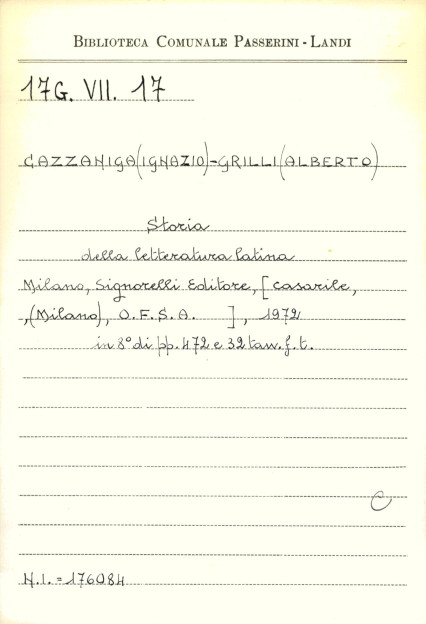 BIBLIOTECA COMUNALE PASSERINI - LANDI
17G. VII. 17
CAZZANIGA (IGNAZIO) - GRILLI (ALBERTO)
Storia
della letteratura latina
Milano, Signorelli Editore, [Casarile,
,(Milano), O.F.S.A. ], 1972
in 8° di pp. 472 e 32 tav. f. t.
C
N.I. = 176084